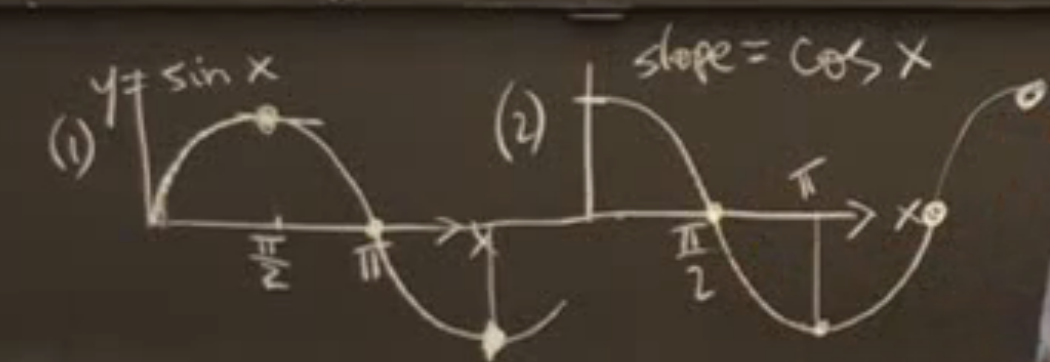 (1) y = sin x
π/2
π
x
(2) slope = cos x
π/2
π
x